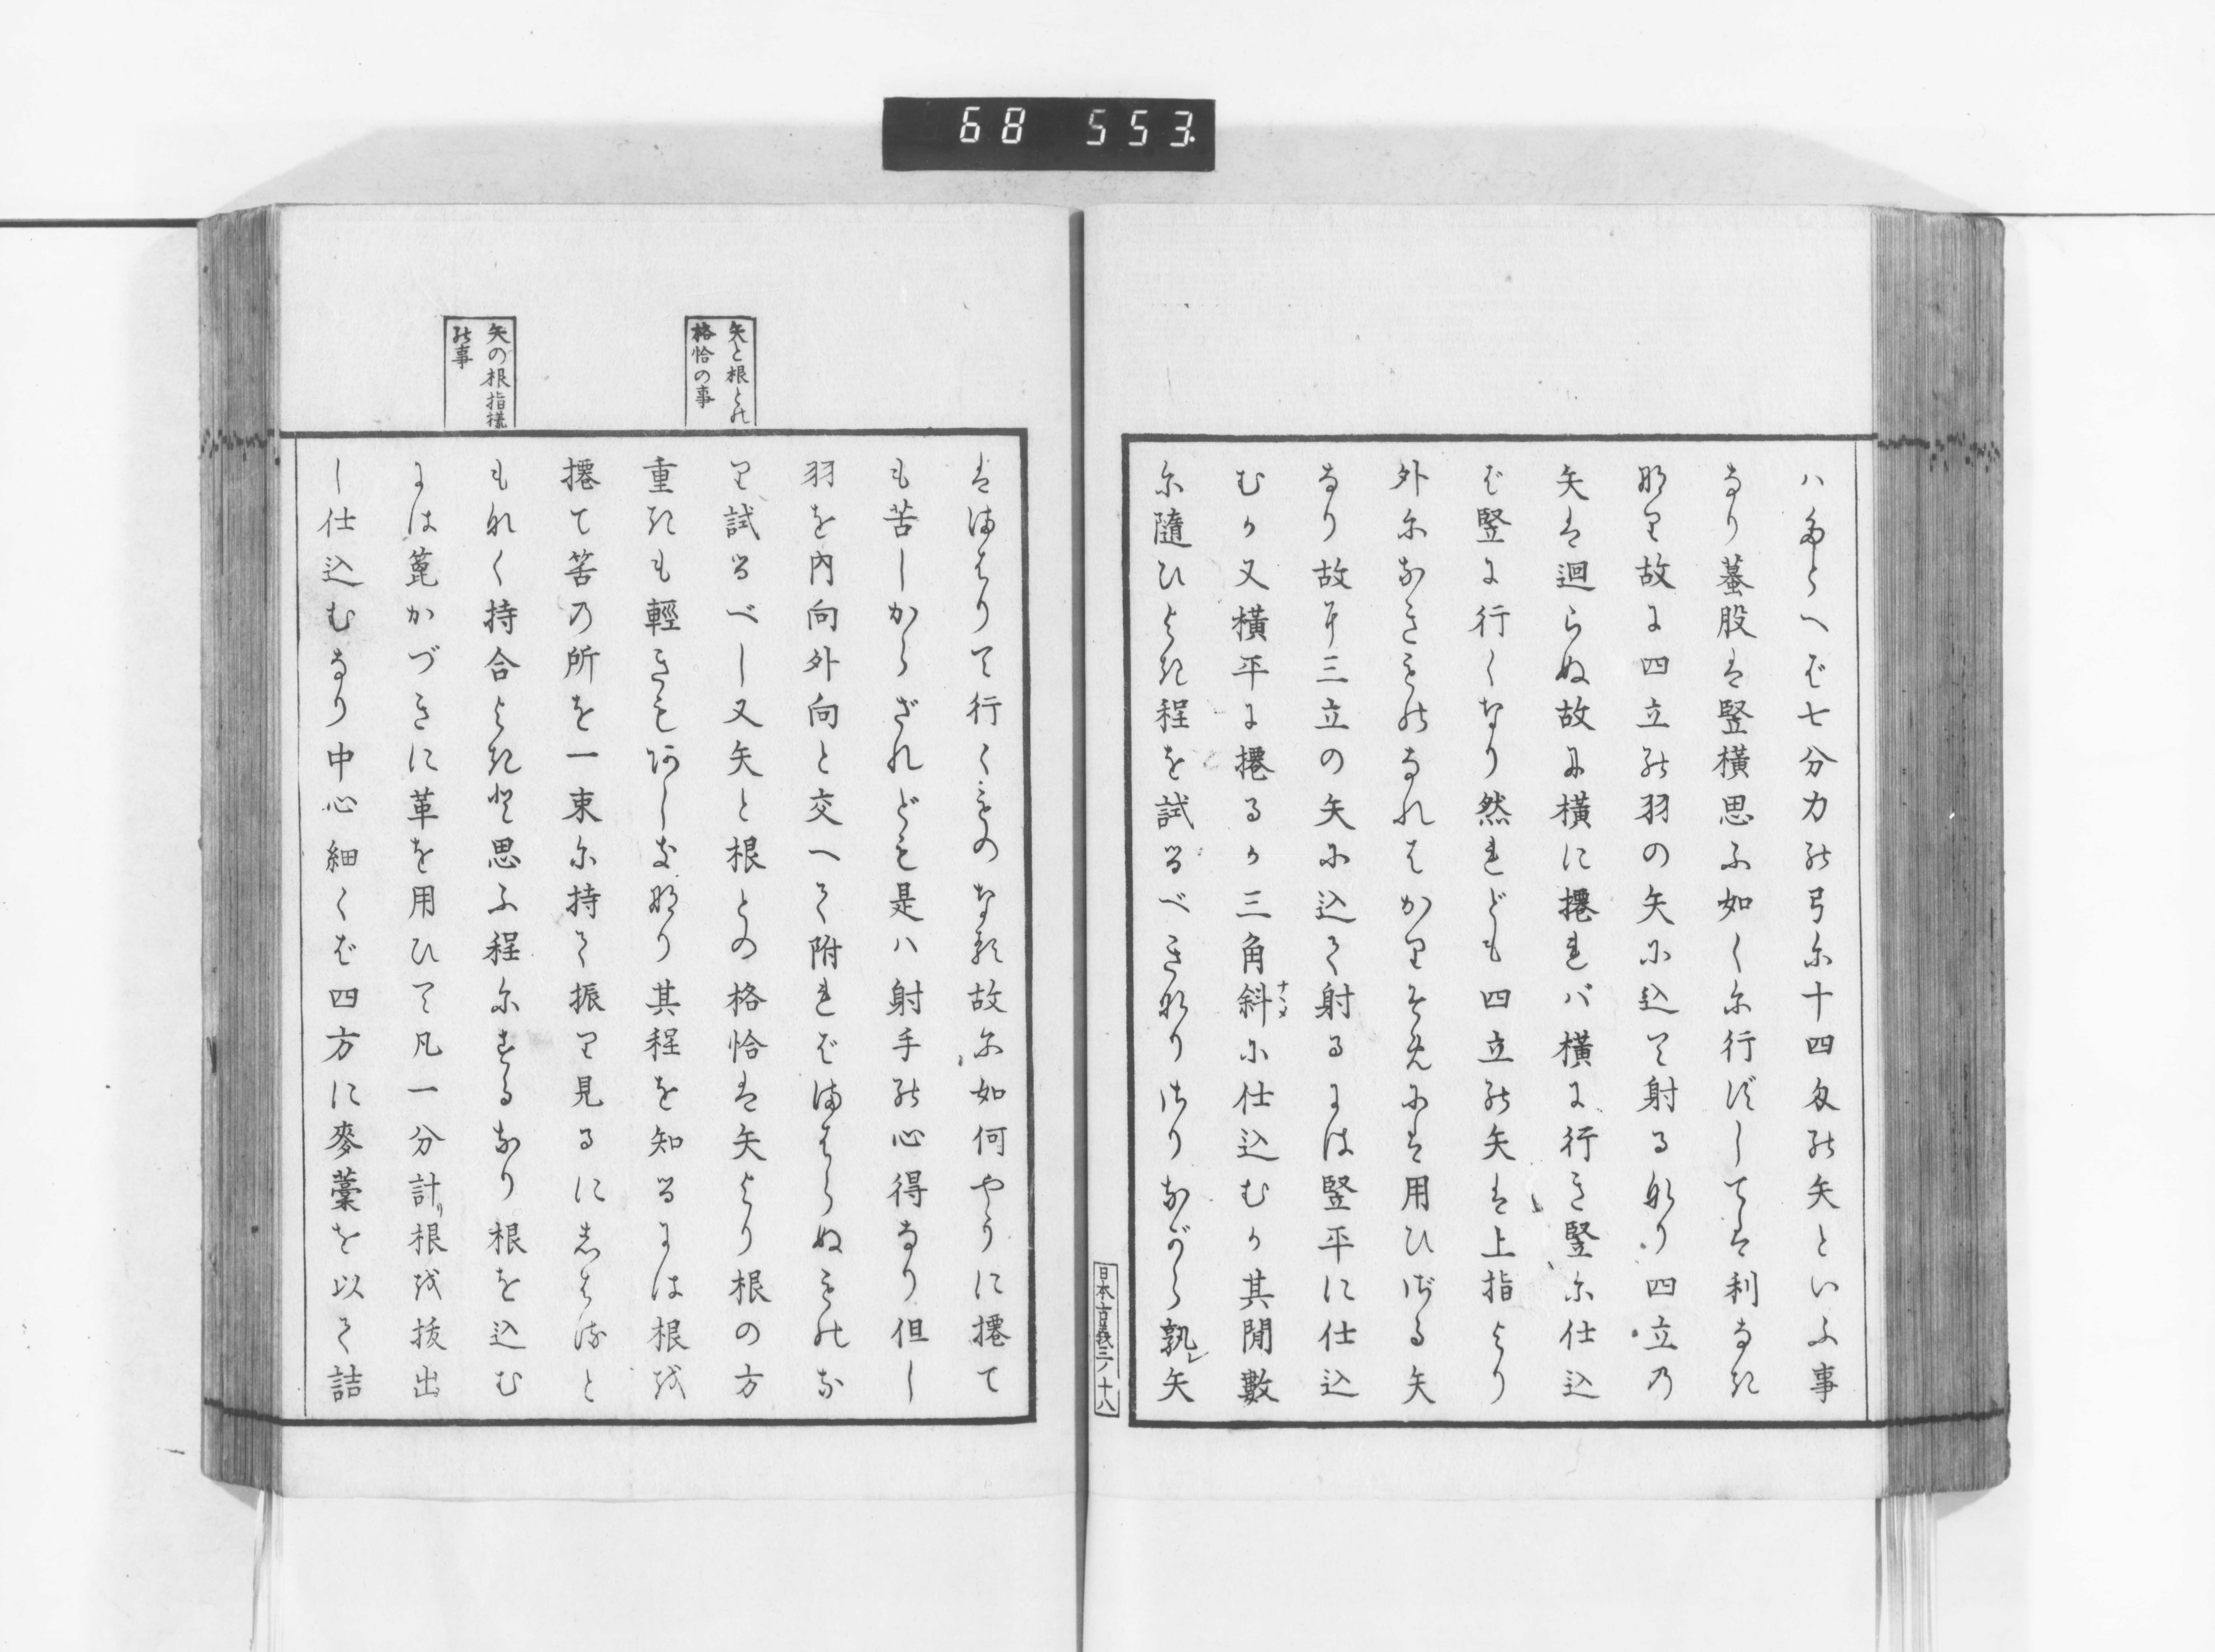 68 553
ハたとへば七分力の弓に十四匁の矢といふ事
なり蟇股は竪横思ふ如くに行ずしては利なき
なり故に四立の羽の矢に込て射るなり四立の
矢は廻らぬ故に横に捲れバ横に行き竪に仕込
ば竪に行くなり然れども四立の矢は上指より
外になきものなればかりそめには用ひざる矢
なり故に三立の矢に込て射るには竪平に仕込
むか又横平に捲るか三角斜に仕込むか其間數
ナヽメ
に隨ひよき程を試るべきなりさりながら孰レ矢
日本古義三ノ十八
矢と根との
格恰の事
矢の根指様
の事
はまはりて行くものなる故に如何やうに捲て
も苦しからざれども是ハ射手の心得なり但し
羽を內向外向と交へて附ればまはらぬものな
り試るべし又矢と根との格恰は矢より根の方
重きも輕きもあしきなり其程を知るには根を
捲て筈の所を一束に持て振り見るにしはると
もなく持合よきと思ふ程にするなり根を込む
には篦かづきに革を用ひて凡一分計り根を拔出
し仕込むなり中心細くば四方に麥藁を以て詰